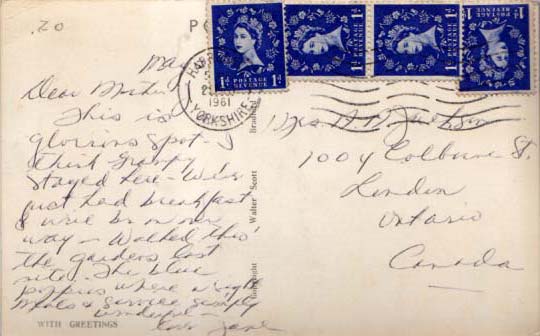 .20
P
1D POSTAGE REVENUE 1D
1D
1D
POSTAGE REVENUE 1D
HAR
2
1961
YORKSHIRE
Ma
Dear Mother
This is
glorious spot - I
think Granny
stayed here - We
just had breakfast
& will be on our
way - Walked thro'
the gardens last
nite. The blue
poppies where a sight
Meals & service simply
wonderful -
Love Jane
WITH GREETINGS
Copyright Walter Scott Bradford
Mrs.
1004 Colborne St.
London
Ontario
Canada